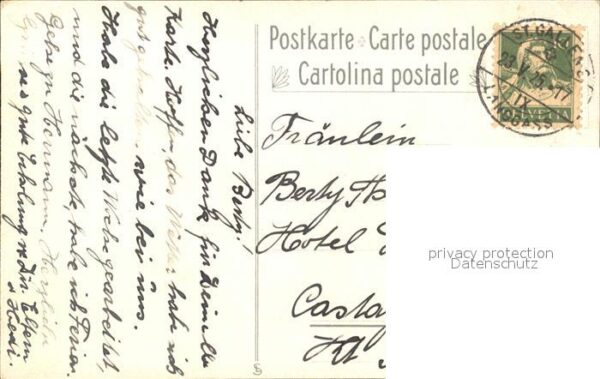 Postkarte Carte postale
Cartolina postale
ST. GALLEN
23.V.25.
IX
LANGGASS
HELVETIA
Fräulein
Berty Th
Hotel
Casta
Kt
privacy protection
Datenschutz
Liebe Berty!
Herzlichen Dank für Deine lb.
Karte. Hoffen, das Wetter habe sich
gut gehalten, wie bei uns.
Habe die letzte Woche gearbeitet,
und die nächste habe ich Ferien.
Gehe zu Hermann. Herzliche
gute Erholung v. Dir. Eltern
u. Hedi.